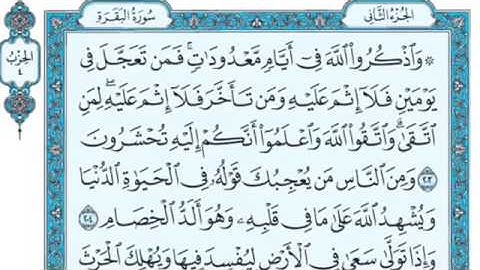 الجُزْءُ الثَّانِي
سُورَةُ البَقَرَةِ
الحِزْبُ ٤
۞ وَٱذْكُرُوا۟ ٱللَّهَ فِىٓ أَيَّامٍ مَّعْدُودَٰتٍ ۚ فَمَن تَعَجَّلَ فِى
يَوْمَيْنِ فَلَآ إِثْمَ عَلَيْهِ وَمَن تَأَخَّرَ فَلَآ إِثْمَ عَلَيْهِ ۚ لِمَنِ
ٱتَّقَىٰ ۗ وَٱتَّقُوا۟ ٱللَّهَ وَٱعْلَمُوٓا۟ أَنَّكُمْ إِلَيْهِ تُحْشَرُونَ
٢٠٣ وَمِنَ ٱلنَّاسِ مَن يُعْجِبُكَ قَوْلُهُۥ فِى ٱلْحَيَوٰةِ ٱلدُّنْيَا
وَيُشْهِدُ ٱللَّهَ عَلَىٰ مَا فِى قَلْبِهِۦ وَهُوَ أَلَدُّ ٱلْخِصَامِ ٢٠٤
وَإِذَا تَوَلَّىٰ سَعَىٰ فِى ٱلْأَرْضِ لِيُفْسِدَ فِيهَا وَيُهْلِكَ ٱلْحَرْثَ